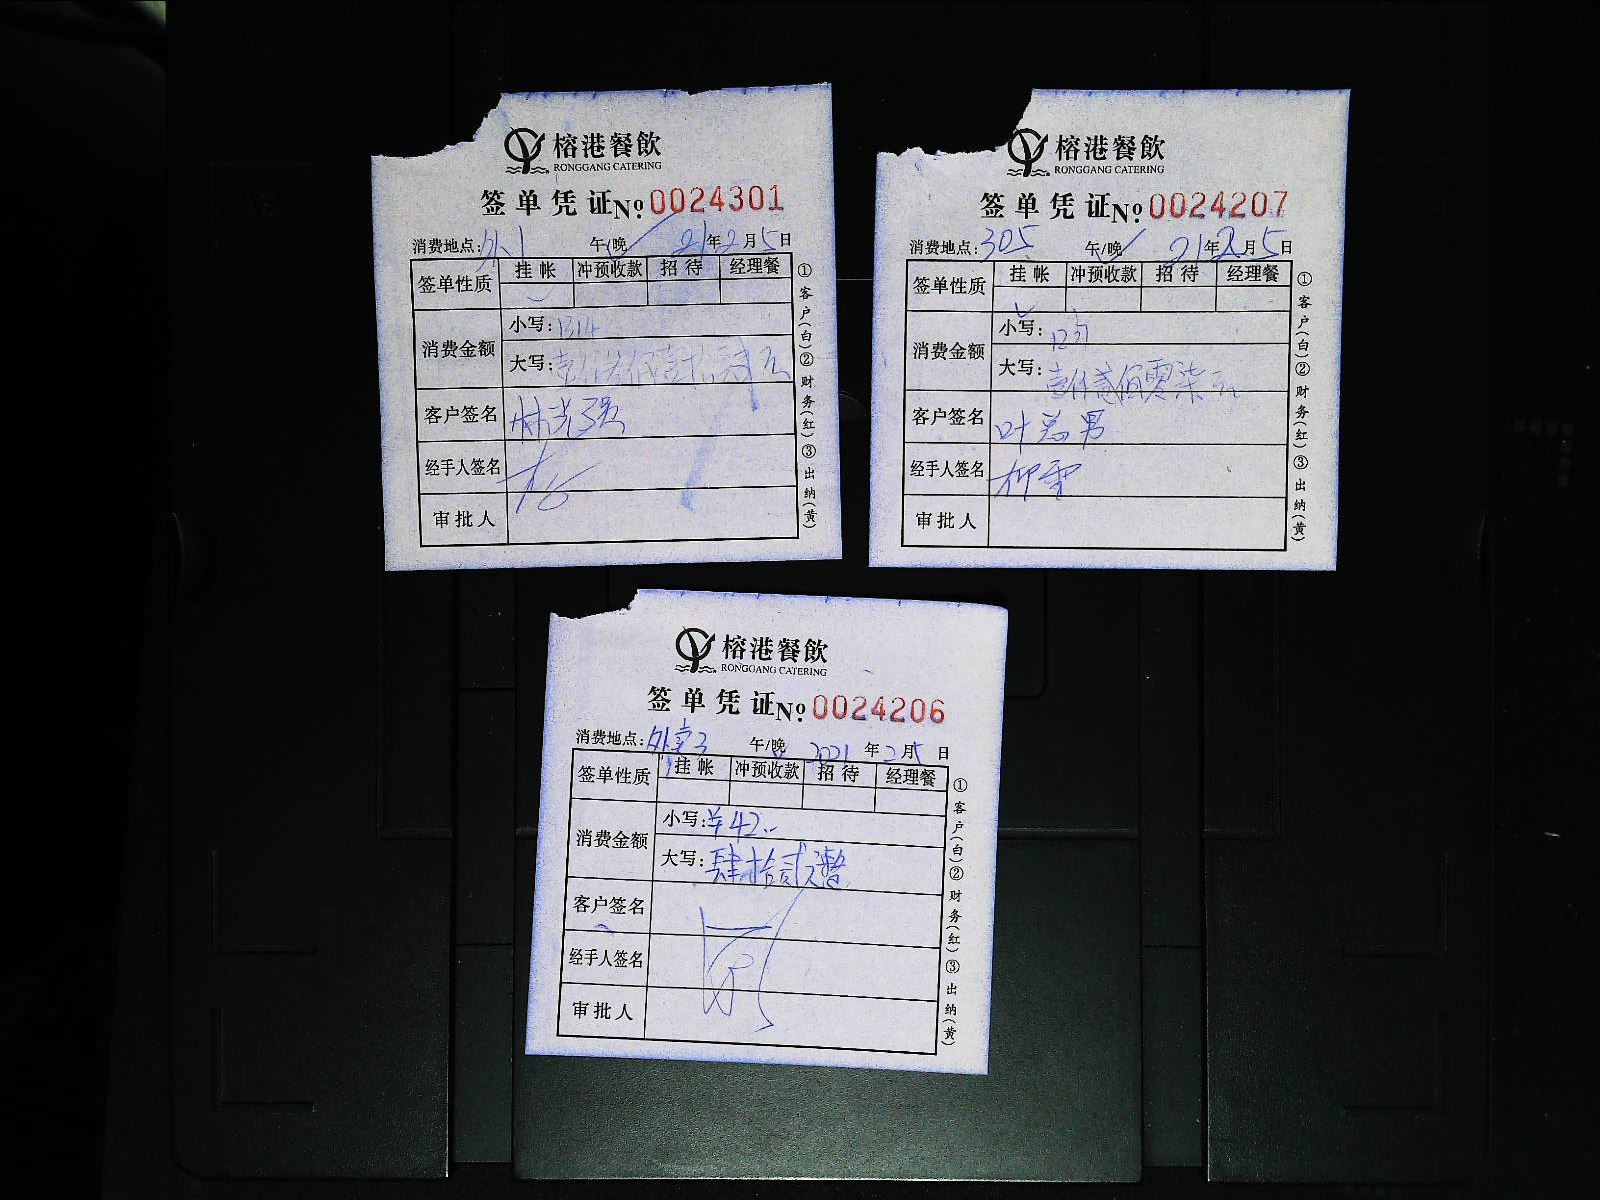 榕港餐飲
RONGGANG CATERING
签单凭证 №0024301
消费地点:外1 午/晚 21年2月5日
签单性质 挂帐 冲预收款 招待 经理餐
消费金额 小写:
大写:
客户签名 林光强
经手人签名
审批人
①客户(白)②财务(红)③出纳(黄)
榕港餐飲
RONGGANG CATERING
签单凭证 №0024207
消费地点:305 午/晚 21年2月5日
签单性质 挂帐 冲预收款 招待 经理餐
消费金额 小写:
大写:壹仟贰佰零柒元
客户签名 叶总男
经手人签名 柳雪
审批人
①客户(白)②财务(红)③出纳(黄)
榕港餐飲
RONGGANG CATERING
签单凭证 №0024206
消费地点:外卖3 午/晚 2021年2月5日
签单性质 挂帐 冲预收款 招待 经理餐
消费金额 小写:¥42..
大写:肆拾贰元整
客户签名
经手人签名
审批人
①客户(白)②财务(红)③出纳(黄)